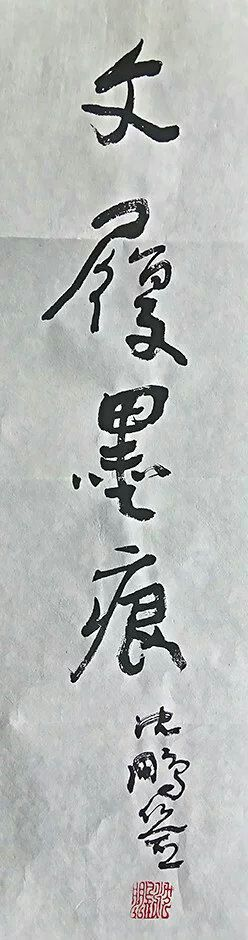 文履墨痕
沈鹏签